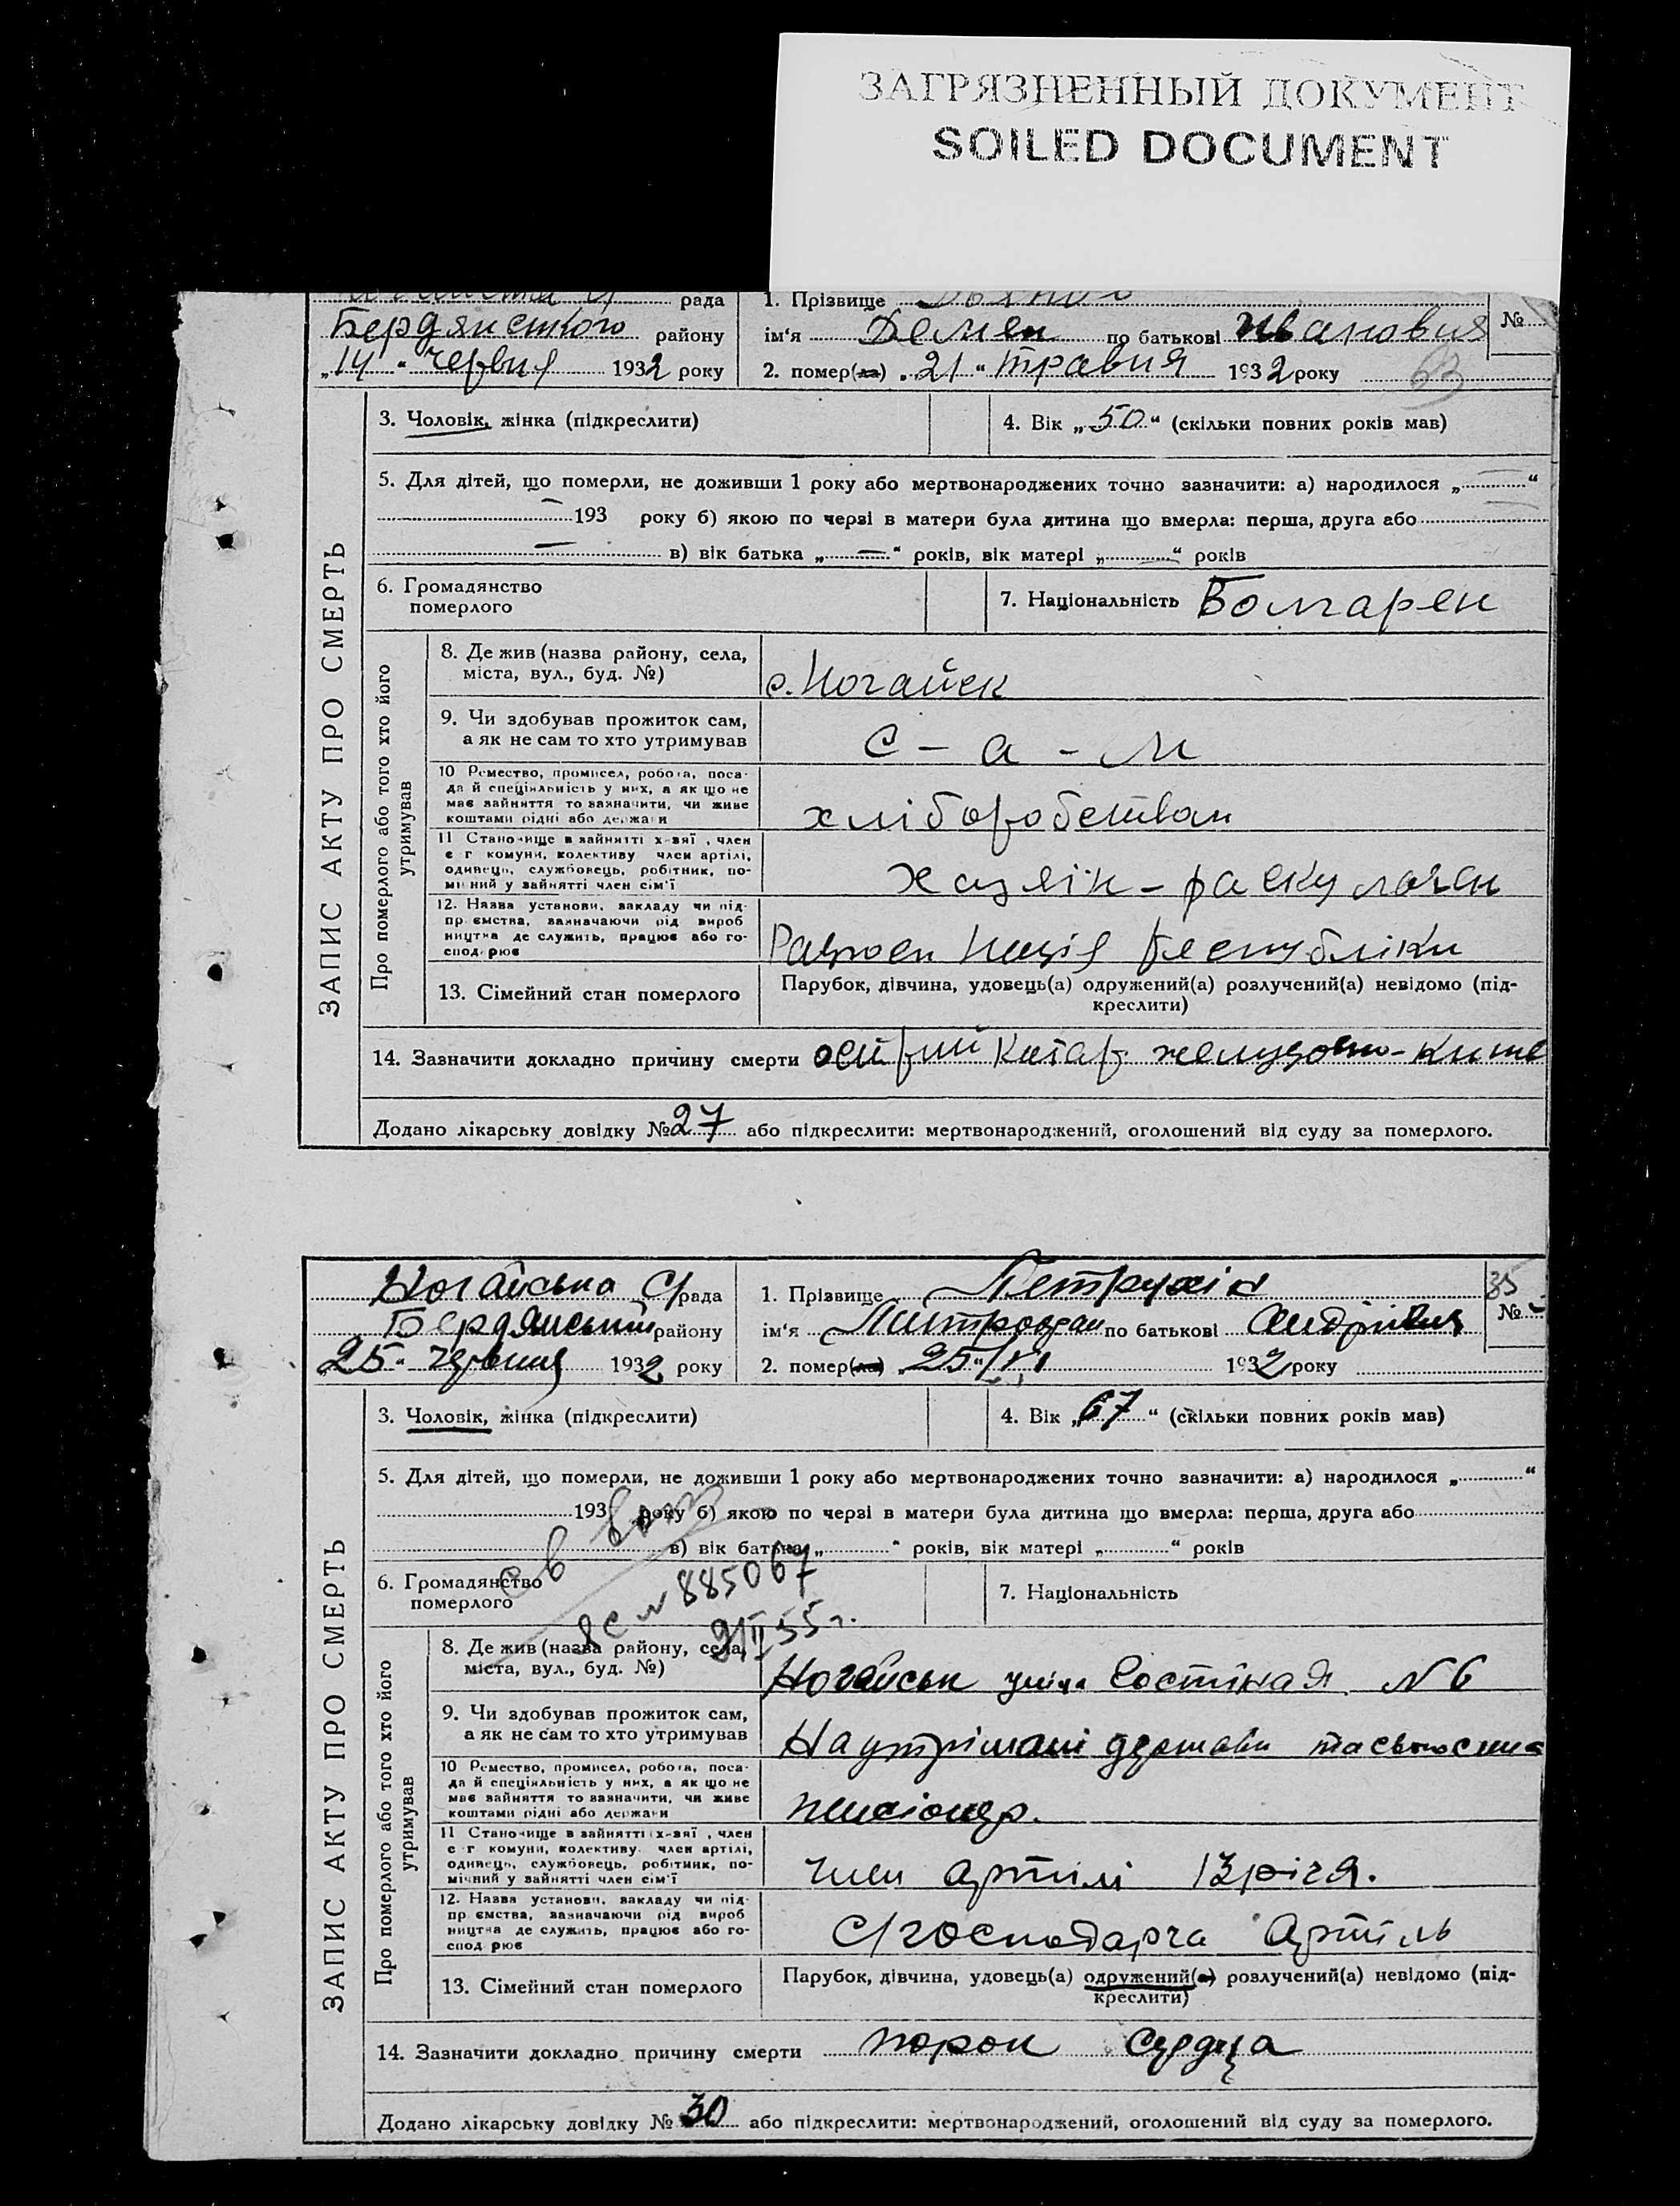 ЗАГРЯЗНЕННЫЙ ДОКУМЕНТ
SOILED DOCUMENT
рада
1. Прізвище
Бердянського району
ім‘я Демян по батькові Иванович
№
„14“ червня 1932 року
2. помер(ла) „21“ травня 1932 року
63
ЗАПИС АКТУ ПРО СМЕРТЬ
3. Чоловік, жінка (підкреслити)
4. Вік „50“ (скільки повних років мав)
5. Для дітей, що померли, не доживши 1 року або мертвонароджених точно зазначити: а) народилося „ “
193 року б) якою по черзі в матери була дитина що вмерла: перша, друга або
в) вік батька „—“ років, вік матері „ “ років
6. Громадянство
померлого
7. Національність Болгарен
Про померлого або того хто його
утримував
8. Де жив (назва району, села,
міста, вул., буд. №)
с. Ногайск
9. Чи здобував прожиток сам,
а як не сам то хто утримував
с - а - м
10 Ремество, промисел, робота, поса-
да й спеціяльність у них, а як що не
має зайняття то зазначити, чи живе
коштами рідні або держави
хліборобством
11 Становище в зайнятті х-зяї , член
с г комуни, колективу член артілі,
одинець, службовець, робітник, по-
мічний у зайнятті член сім‘ї
хазяїн - раскулачен
12. Назва установи, закладу чи під-
пр ємства, зазначаючи рід вироб
ництва де служить, працює або го-
сподарює
республіки
13. Сімейний стан померлого
Парубок, дівчина, удовець(а) одружений(а) розлучений(а) невідомо (під-
креслити)
14. Зазначити докладно причину смерти острий катар желудочно-кише
Додано лікарську довідку № 27 або підкреслити: мертвонароджений, оголошений від суду за померлого.
Ногайська С/рада
1. Прізвище Петрухін
35
Бердянський району
ім‘я по батькові Андрієвич
№
„25“ червня 1932 року
2. помер(ла) „25“/VI 1932 року
ЗАПИС АКТУ ПРО СМЕРТЬ
3. Чоловік, жінка (підкреслити)
4. Вік „67“ (скільки повних років мав)
5. Для дітей, що померли, не доживши 1 року або мертвонароджених точно зазначити: а) народилося „ “
193 року б) якою по черзі в матери була дитина що вмерла: перша, друга або
в) вік батька „ “ років, вік матері „ “ років
св
№ 885067
55 г.
6. Громадянство
померлого
7. Національність
Про померлого або того хто його
утримував
8. Де жив (назва району, села,
міста, вул., буд. №)
Ногайськ № 6
9. Чи здобував прожиток сам,
а як не сам то хто утримував
На утрімані держави та
10 Ремество, промисел, робота, поса-
да й спеціяльність у них, а як що не
має зайняття то зазначити, чи живе
коштами рідні або держави
пенсіонер.
11 Становище в зайнятті х-зяї , член
с г комуни, колективу член артілі,
одинець, службовець, робітник, по-
мічний у зайнятті член сім‘ї
член артілі 13 річя.
12. Назва установи, закладу чи під-
пр ємства, зазначаючи рід вироб
ництва де служить, працює або го-
сподарює
С/господарча Артіль
13. Сімейний стан померлого
Парубок, дівчина, удовець(а) одружений(а) розлучений(а) невідомо (під-
креслити)
14. Зазначити докладно причину смерти порок сердца
Додано лікарську довідку № 30 або підкреслити: мертвонароджений, оголошений від суду за померлого.